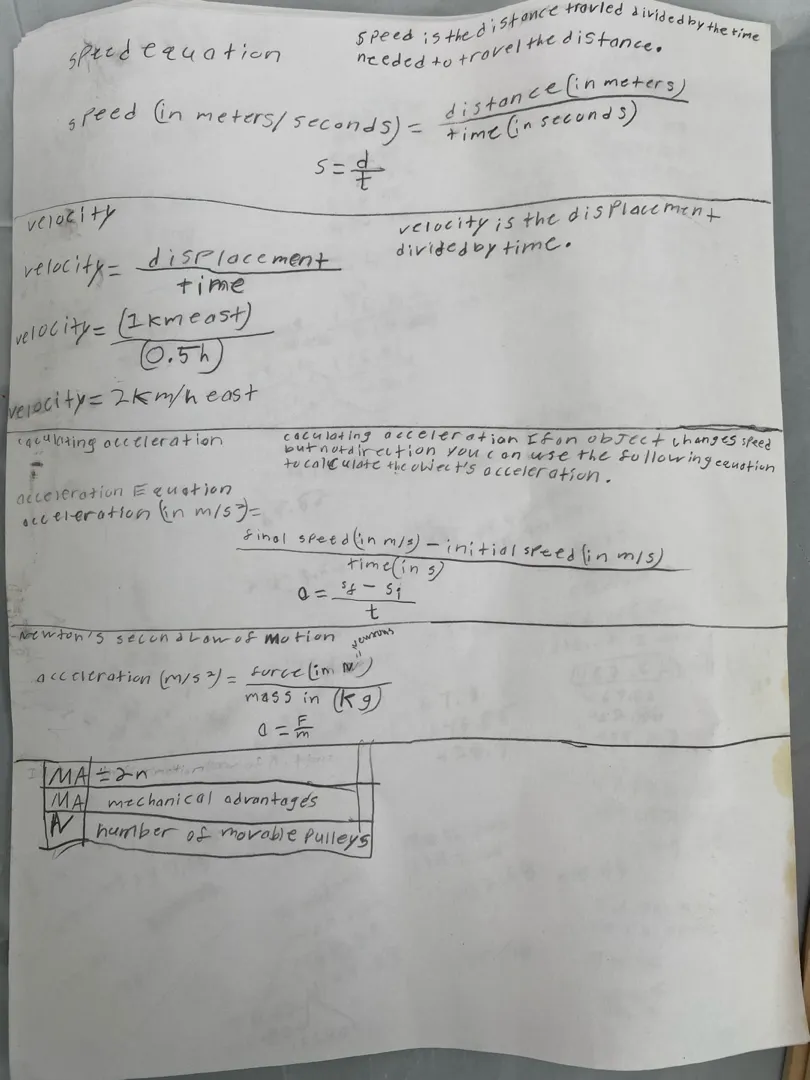 speed equation
speed is the distance travled divided by the time
needed to travel the distance.
speed (in meters/seconds) = distance (in meters)
time (in seconds)
s = d
t
velocity
velocity is the displacement
divided by time.
velocity = displacement
time
velocity = (1 km east)
(0.5 h)
velocity = 2 km/h east
caculating acceleration
caculating acceleration If an object changes speed
but not direction you can use the following equation
to calculate the object's acceleration.
acceleration Equation
acceleration (in m/s²) =
final speed (in m/s) - initial speed (in m/s)
time (in s)
a = sf - si
t
Newton's second Law of Motion
acceleration (m/s²) = force (im N)
mass in (kg)
a = F
m
MA = 2n
MA mechanical advantages
N number of movable pulleys